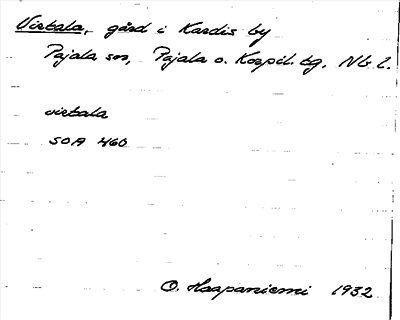 Virtala, gård i Kardis by
Pajala sn, Pajala o. Korpil. tg. Nb. l.
virtala
SOA 460
O. Haapaniemi 1932